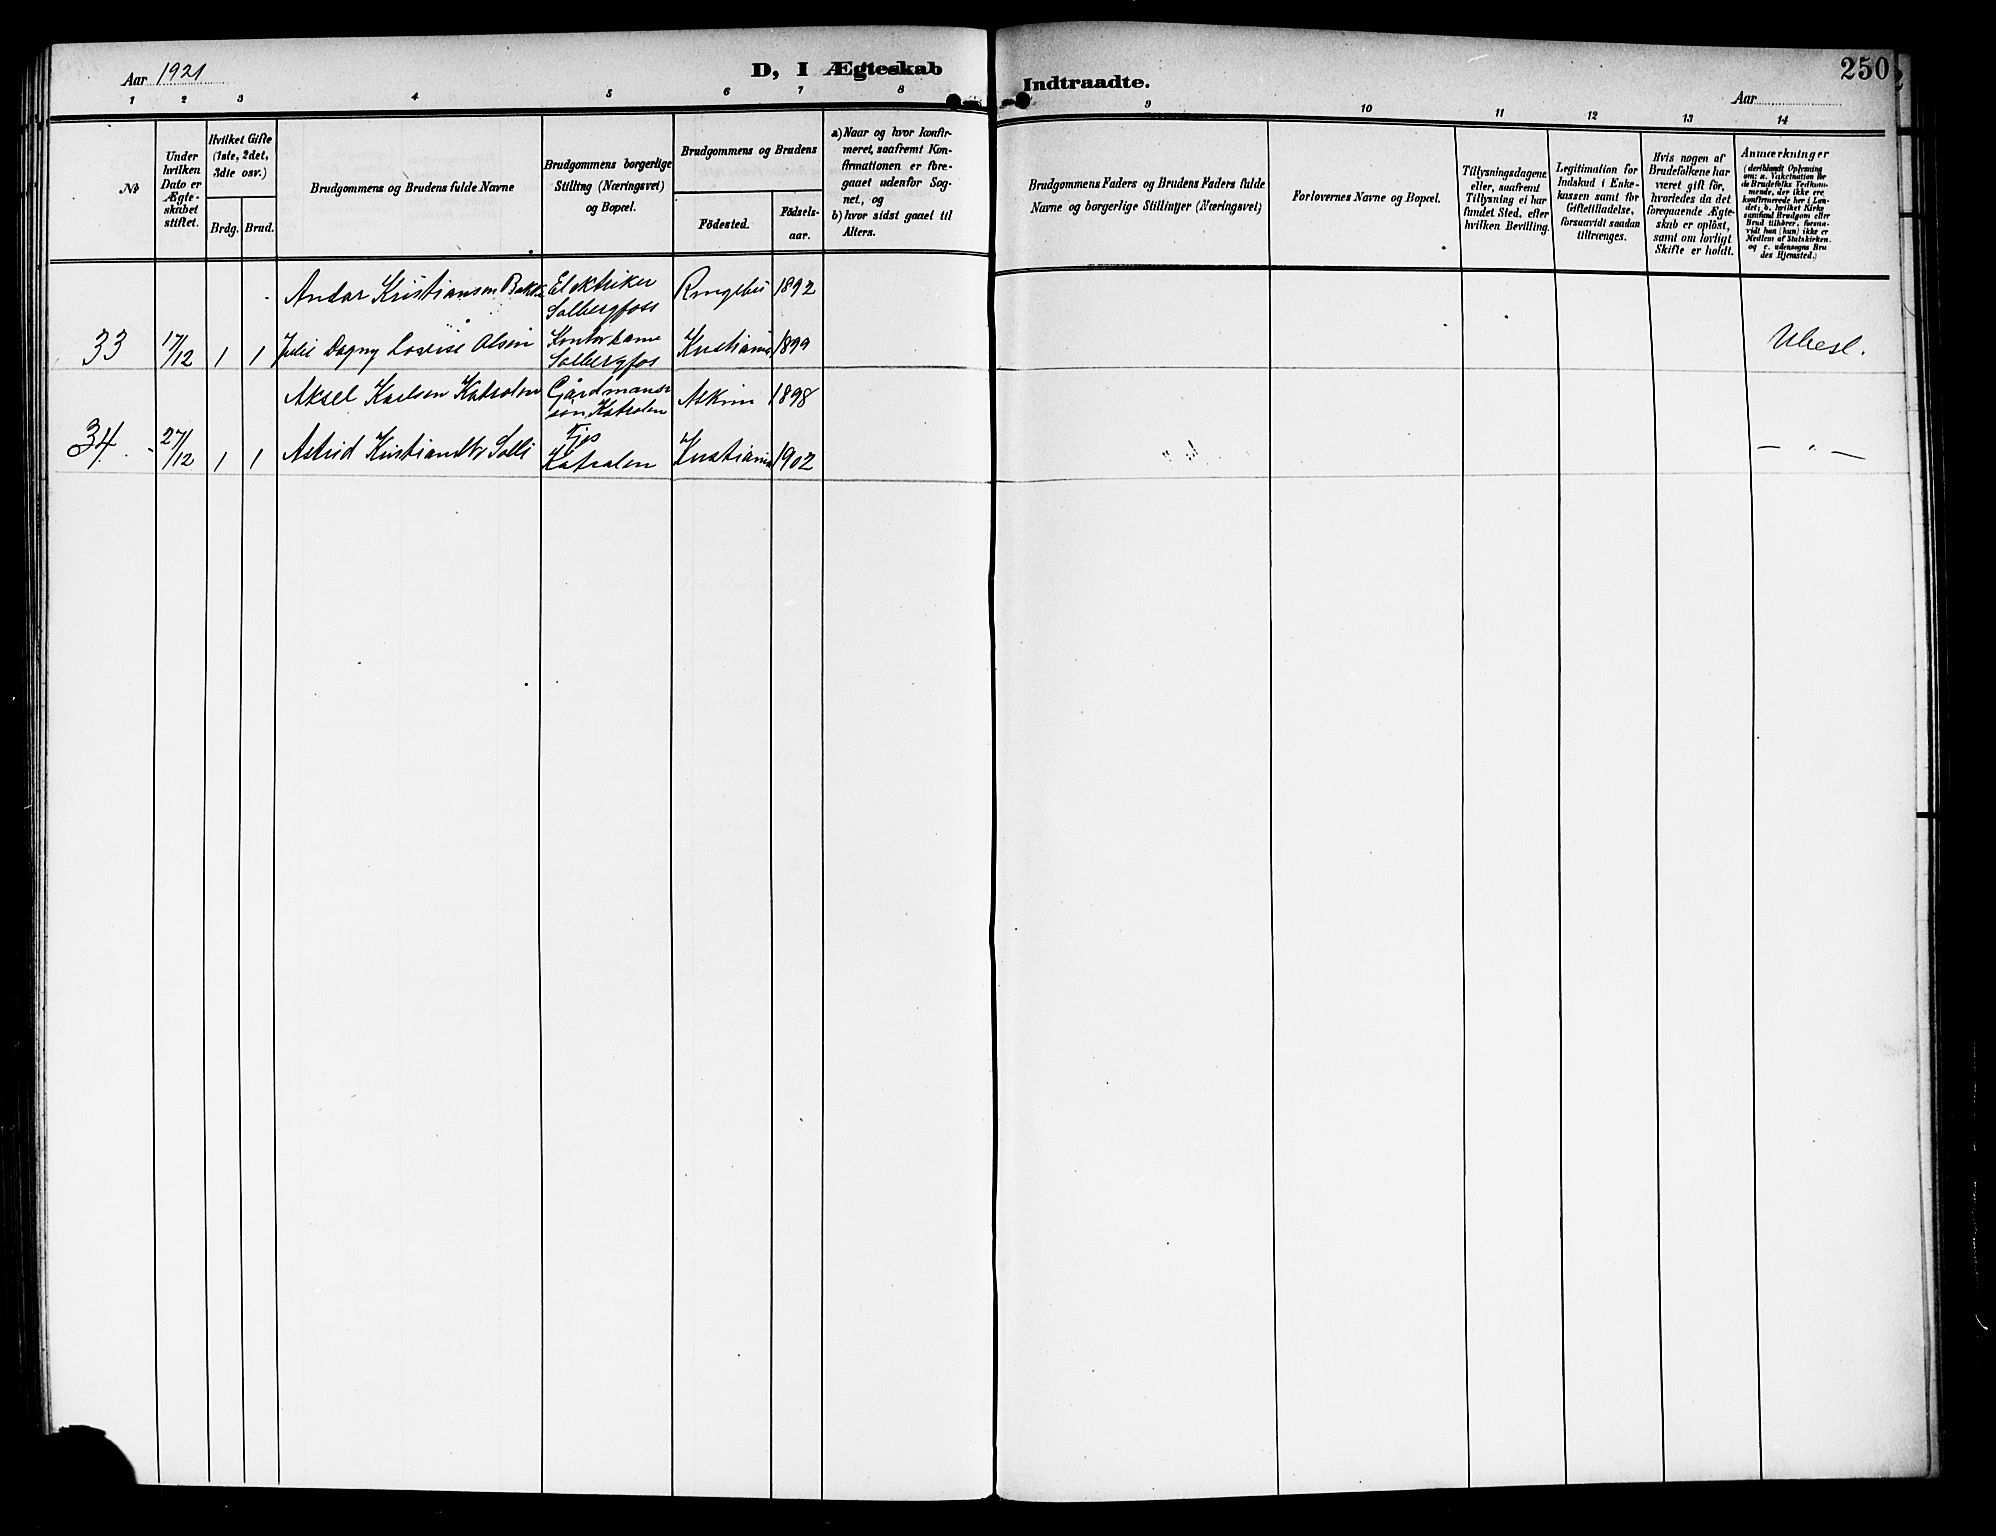 Aar 1921
D, I Ægteskab
Indtraadte.
250
Aar
1 2 3 4 5 6 7 8 9 10 11 12 13 14
No
Under
hvilken
Dato er
Ægte-
skabet
stiftet.
Hvilket Gifte
(1ste, 2det,
3die osv.)
Brdg. Brud.
Brudgommens og Brudens fulde Navne
Brudgommens borgerlige
Stilling (Næringsvei)
og Bopæl.
Brudgommens og Brudens
Födested.
Födsels-
aar.
a) Naar og hvor konfir-
meret, saafremt Kon-
firmationen er fore-
gaaet udenfor Sog-
net, og
b) hvor sidst gaaet til
Alters.
Brudgommens Faders og Brudens Faders fulde
Navne og borgerlige Stillinger (Næringsvei)
Forlovernes Navne og Bopæl.
Tillysningsdagene
eller, saafremt
Tillysning ei har
fundet Sted, efter
hvilken Bevilling.
Legitimation for
Indskud i Enke-
kassen samt for
Giftetilladelse,
forsaavidt saadan
tiltrænges.
Hvis nogen af
Brudefolkene har
været gift för,
hvorledes da det
foregaaende Ægte-
skab er oplöst,
samt om lovligt
Skifte er holdt.
Anmærkninger
(deriblandt Oplysning
om: a. Vakcination for
de Brudefolks Vedkom-
mende, der ikke ere
konfirmerede her i Lan-
det; b. hvilket Kirke
samfund Brudgom eller
Brud tilhörer, forsaa-
vidt han (hun) ikke er
Medlem af Statskirken.
og c. udensogns Bru
des Hjemsted.)
Kristiansen Elektriker Ringebu 1892
Solbergfoss
33 17/12 1 1 Julie Dagny Lovise Olsen Kontordame Kristiania 1899 Ubesl.
Solbergfos
Aksel Karlsen Katralen Gårdmands- Askim 1898
søn, Katralen
34. 27/12 1 1 Astrid Kristiansdtr Solli Tjes Kristiania 1902 - " -
Katralen